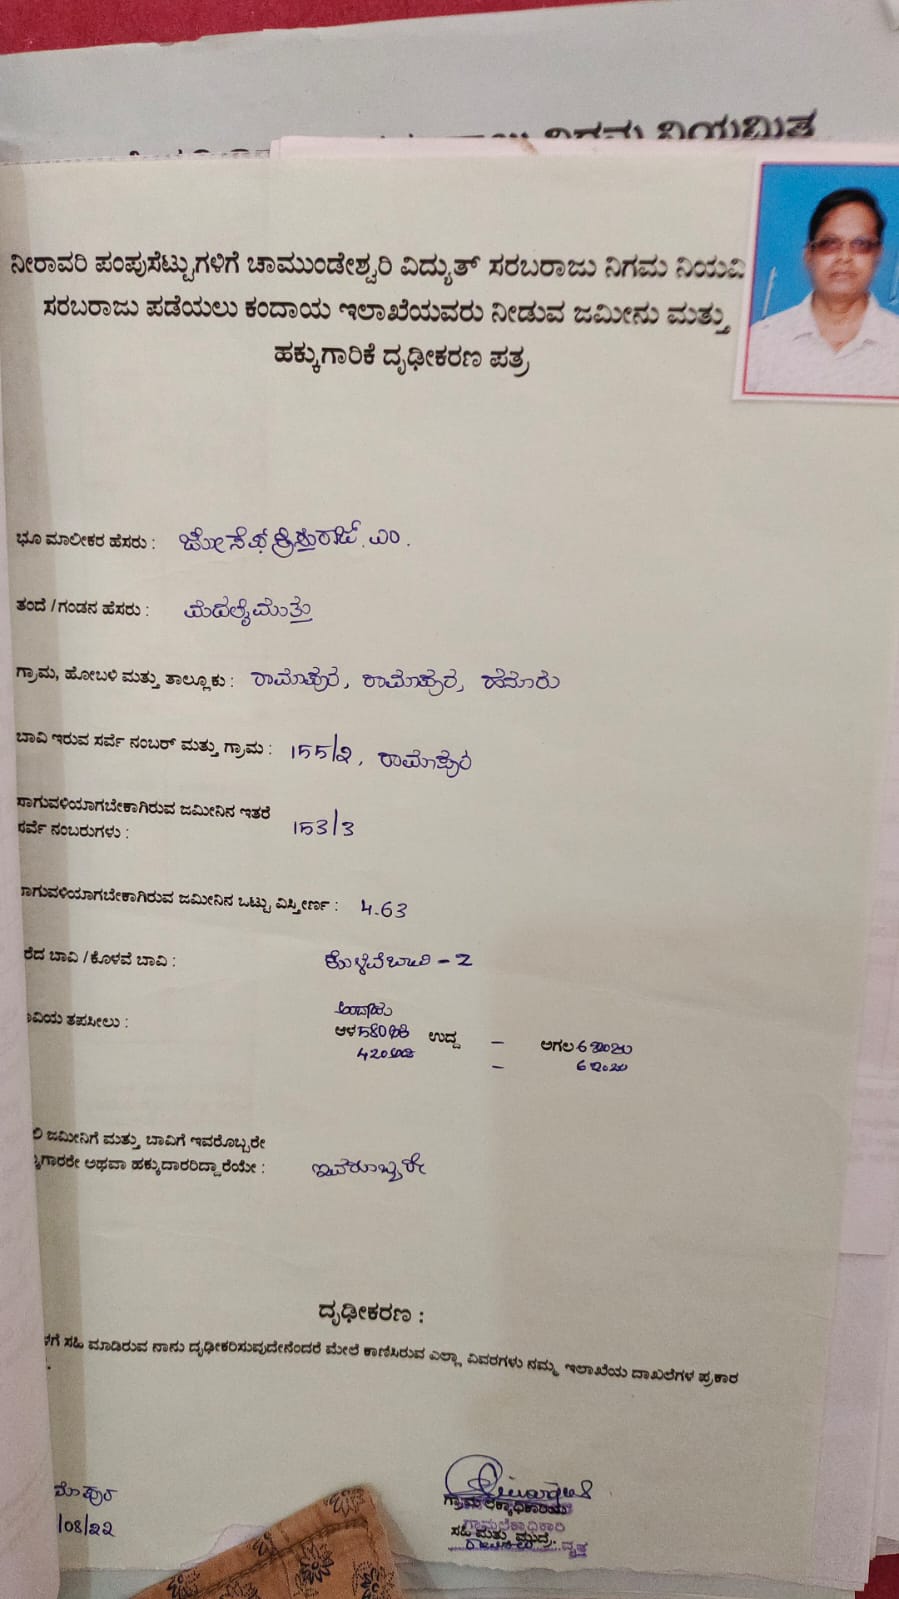 ನಿಗಮ ನಿಯಮಿತ
ನೀರಾವರಿ ಪಂಪುಸೆಟ್ಟುಗಳಿಗೆ ಚಾಮುಂಡೇಶ್ವರಿ ವಿದ್ಯುತ್ ಸರಬರಾಜು ನಿಗಮ ನಿಯಮಿ
ಸರಬರಾಜು ಪಡೆಯಲು ಕಂದಾಯ ಇಲಾಖೆಯವರು ನೀಡುವ ಜಮೀನು ಮತ್ತು
ಹಕ್ಕುಗಾರಿಕೆ ದೃಢೀಕರಣ ಪತ್ರ
ಭೂ ಮಾಲೀಕರ ಹೆಸರು : ಜೋಸೆಫ್ ಕ್ರಿಸ್ತುರಾಜ್. ಎಂ.
ತಂದೆ / ಗಂಡನ ಹೆಸರು : ಮದಲೈಮುತ್ತು
ಗ್ರಾಮ, ಹೋಬಳಿ ಮತ್ತು ತಾಲ್ಲೂಕು : ರಾಮಾಪುರ, ರಾಮಾಪುರ, ಹನೂರು
ಬಾವಿ ಇರುವ ಸರ್ವೆ ನಂಬರ್ ಮತ್ತು ಗ್ರಾಮ : 155/2, ರಾಮಾಪುರ
ಸಾಗುವಳಿಯಾಗಬೇಕಾಗಿರುವ ಜಮೀನಿನ ಇತರೆ
ಸರ್ವೆ ನಂಬರುಗಳು : 153/3
ಾಗುವಳಿಯಾಗಬೇಕಾಗಿರುವ ಜಮೀನಿನ ಒಟ್ಟು ವಿಸ್ತೀರ್ಣ : 4.63
ರೆದ ಬಾವಿ / ಕೊಳವೆ ಬಾವಿ : ಕೊಳವೆಬಾವಿ - 2
ಾವಿಯ ತಪಸೀಲು : ಅಂದಾಜು
ಆಳ 580 ಅಡಿ ಉದ್ದ - ಅಗಲ 6 ಇಂಚು
420 ಅಡಿ - 6 ಇಂಚು
ಲಿ ಜಮೀನಿಗೆ ಮತ್ತು ಬಾವಿಗೆ ಇವರೊಬ್ಬರೇ
ಕ್ಕುಗಾರರೇ ಅಥವಾ ಹಕ್ಕುದಾರರಿದ್ದಾರೆಯೇ : ಇವರೊಬ್ಬರೇ
ದೃಢೀಕರಣ :
ಳಗೆ ಸಹಿ ಮಾಡಿರುವ ನಾನು ದೃಢೀಕರಿಸುವುದೇನೆಂದರೆ ಮೇಲೆ ಕಾಣಿಸಿರುವ ಎಲ್ಲಾ ವಿವರಗಳು ನಮ್ಮ ಇಲಾಖೆಯ ದಾಖಲೆಗಳ ಪ್ರಕಾರ
ಮಾಪುರ
/08/22
ಗ್ರಾಮ ಲೆಕ್ಕಾಧಿಕಾರಿಯ
ಗ್ರಾಮಲೆಕ್ಕಾಧಿಕಾರಿ
ಸಹಿ ಮತ್ತು ಮುದ್ರೆ.
ವೃತ್ತ